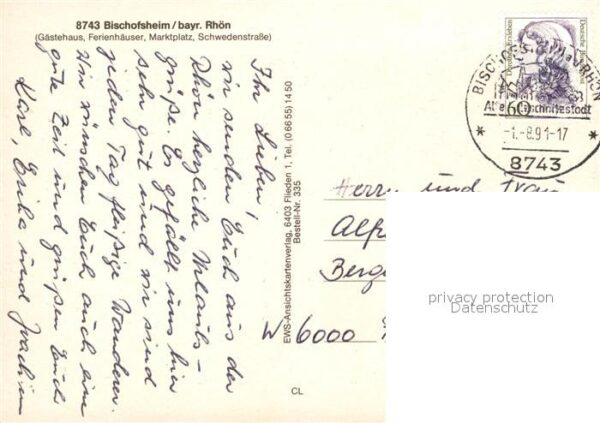 8743 Bischofsheim/bayr. Rhön
(Gästehaus, Ferienhäuser, Marktplatz, Schwedenstraße)
Ihr Lieben,
wir senden Euch aus der
Rhön herzliche Urlaubs-
grüße. Es gefällt uns hier
sehr gut und wir sind
jeden Tag fleißige Wanderer.
Wir wünschen Euch auch eine
gute Zeit und grüßen Euch
Karl, Erika und Joachim
EWS-Ansichtskartenverlag, 6403 Flieden 1, Tel. (0 66 55) 14 50
Bestell-Nr. 335
CL
Dorothea Erxleben
60
BISCHOFSHEIM a d RHÖN
-1.-8.91-17
8743
Herrn und Frau
W-6000
privacy protection
Datenschutz